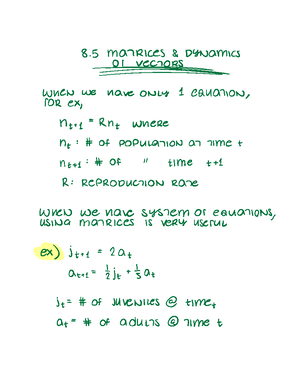 8.5 MATRICES & DYNAMICS
OF VECTORS
WHEN WE HAVE ONLY 1 EQUATION,
FOR EX,
n_{t+1} = Rn_t WHERE
n_t : # OF POPULATION AT TIME t
n_{t+1} : # OF " TIME t+1
R: REPRODUCTION RATE
WHEN WE HAVE SYSTEM OF EQUATIONS,
USING MATRICES IS VERY USEFUL
ex) j_{t+1} = 2a_t
a_{t+1} = 1/2 j_t + 1/3 a_t
j_t = # OF JUVENILES @ TIME_t
a_t = # OF ADULTS @ TIME t